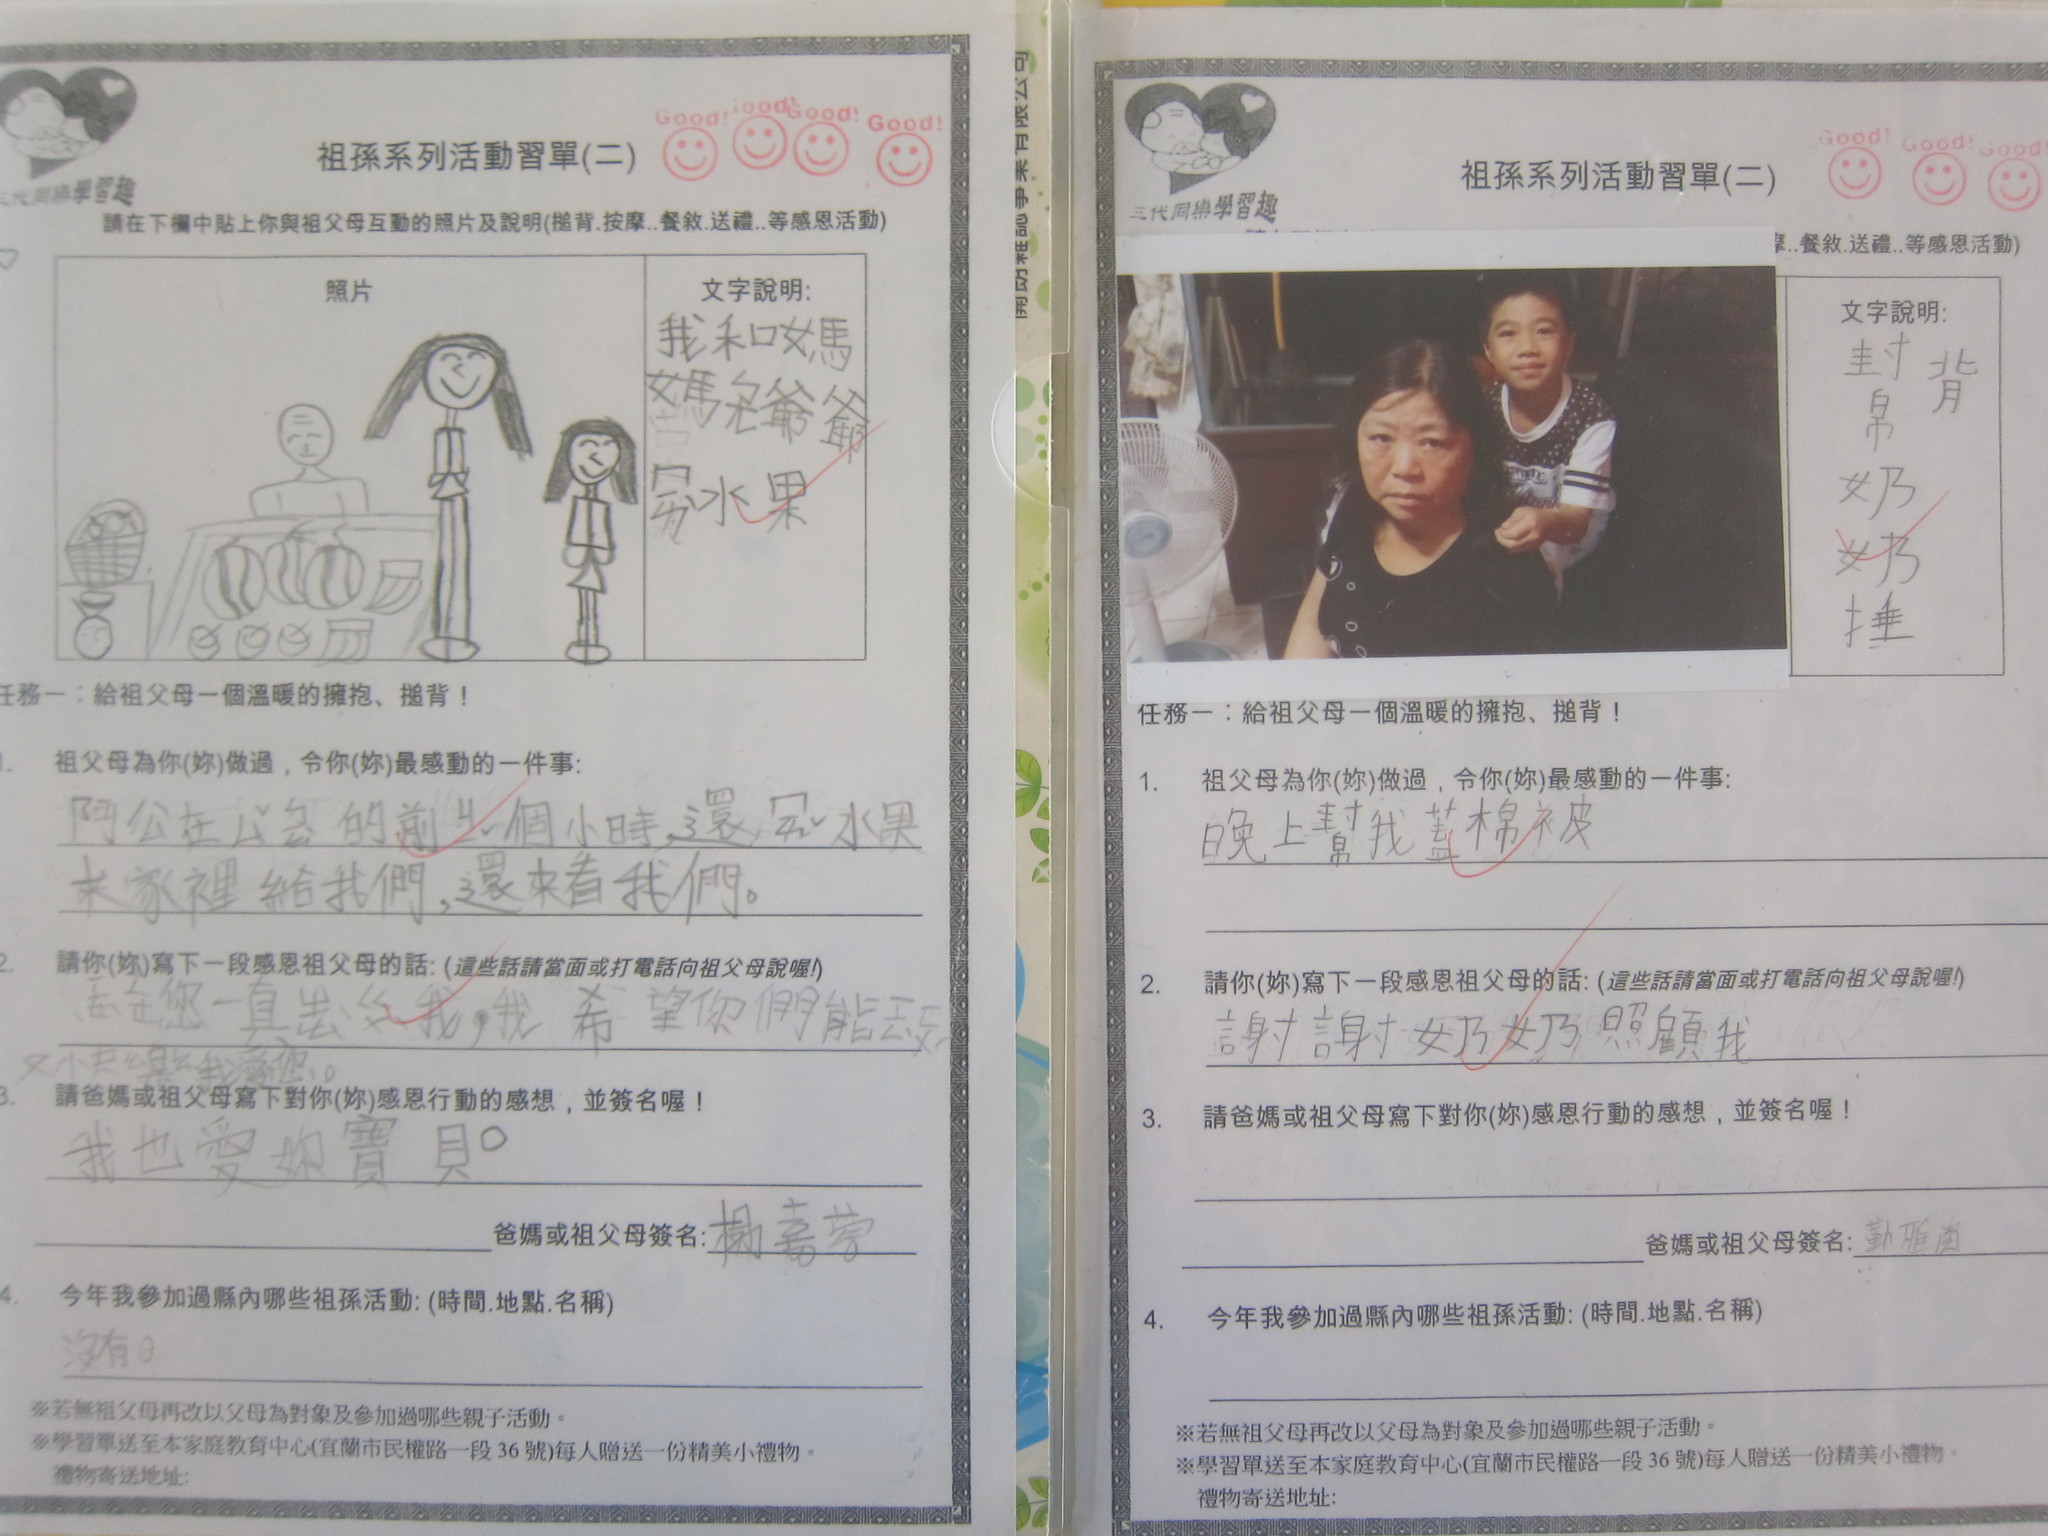 Good! Good! Good! Good!
祖孫系列活動習單(二)
三代同樂學習趣
請在下欄中貼上你與祖父母互動的照片及說明(搥背.按摩..餐敘.送禮..等感恩活動)
照片
文字說明:
我和媽
媽
爺爺
水果
任務一：給祖父母一個溫暖的擁抱、搥背！
1. 祖父母為你(妳)做過，令你(妳)最感動的一件事:
公在 的前 個小時,還 水果
來家裡給我們,還來看我們。
2. 請你(妳)寫下一段感恩祖父母的話: (這些話請當面或打電話向祖父母說喔!)
您一直 我,我希望你們能
3. 請爸媽或祖父母寫下對你(妳)感恩行動的感想，並簽名喔！
我也愛妳寶貝。
爸媽或祖父母簽名: 楊嘉
4. 今年我參加過縣內哪些祖孫活動: (時間.地點.名稱)
沒有。
※若無祖父母再改以父母為對象及參加過哪些親子活動。
※學習單送至本家庭教育中心(宜蘭市民權路一段 36 號)每人贈送一份精美小禮物。
禮物寄送地址:
Good! Good! Good!
祖孫系列活動習單(二)
三代同樂學習趣
摩..餐敘.送禮..等感恩活動)
文字說明:
幫奶奶捶
背
任務一：給祖父母一個溫暖的擁抱、搥背！
1. 祖父母為你(妳)做過，令你(妳)最感動的一件事:
晚上幫我蓋棉被
2. 請你(妳)寫下一段感恩祖父母的話: (這些話請當面或打電話向祖父母說喔!)
謝謝奶奶照顧我
3. 請爸媽或祖父母寫下對你(妳)感恩行動的感想，並簽名喔！
爸媽或祖父母簽名:
4. 今年我參加過縣內哪些祖孫活動: (時間.地點.名稱)
※若無祖父母再改以父母為對象及參加過哪些親子活動。
※學習單送至本家庭教育中心(宜蘭市民權路一段 36 號)每人贈送一份精美小禮物。
禮物寄送地址: